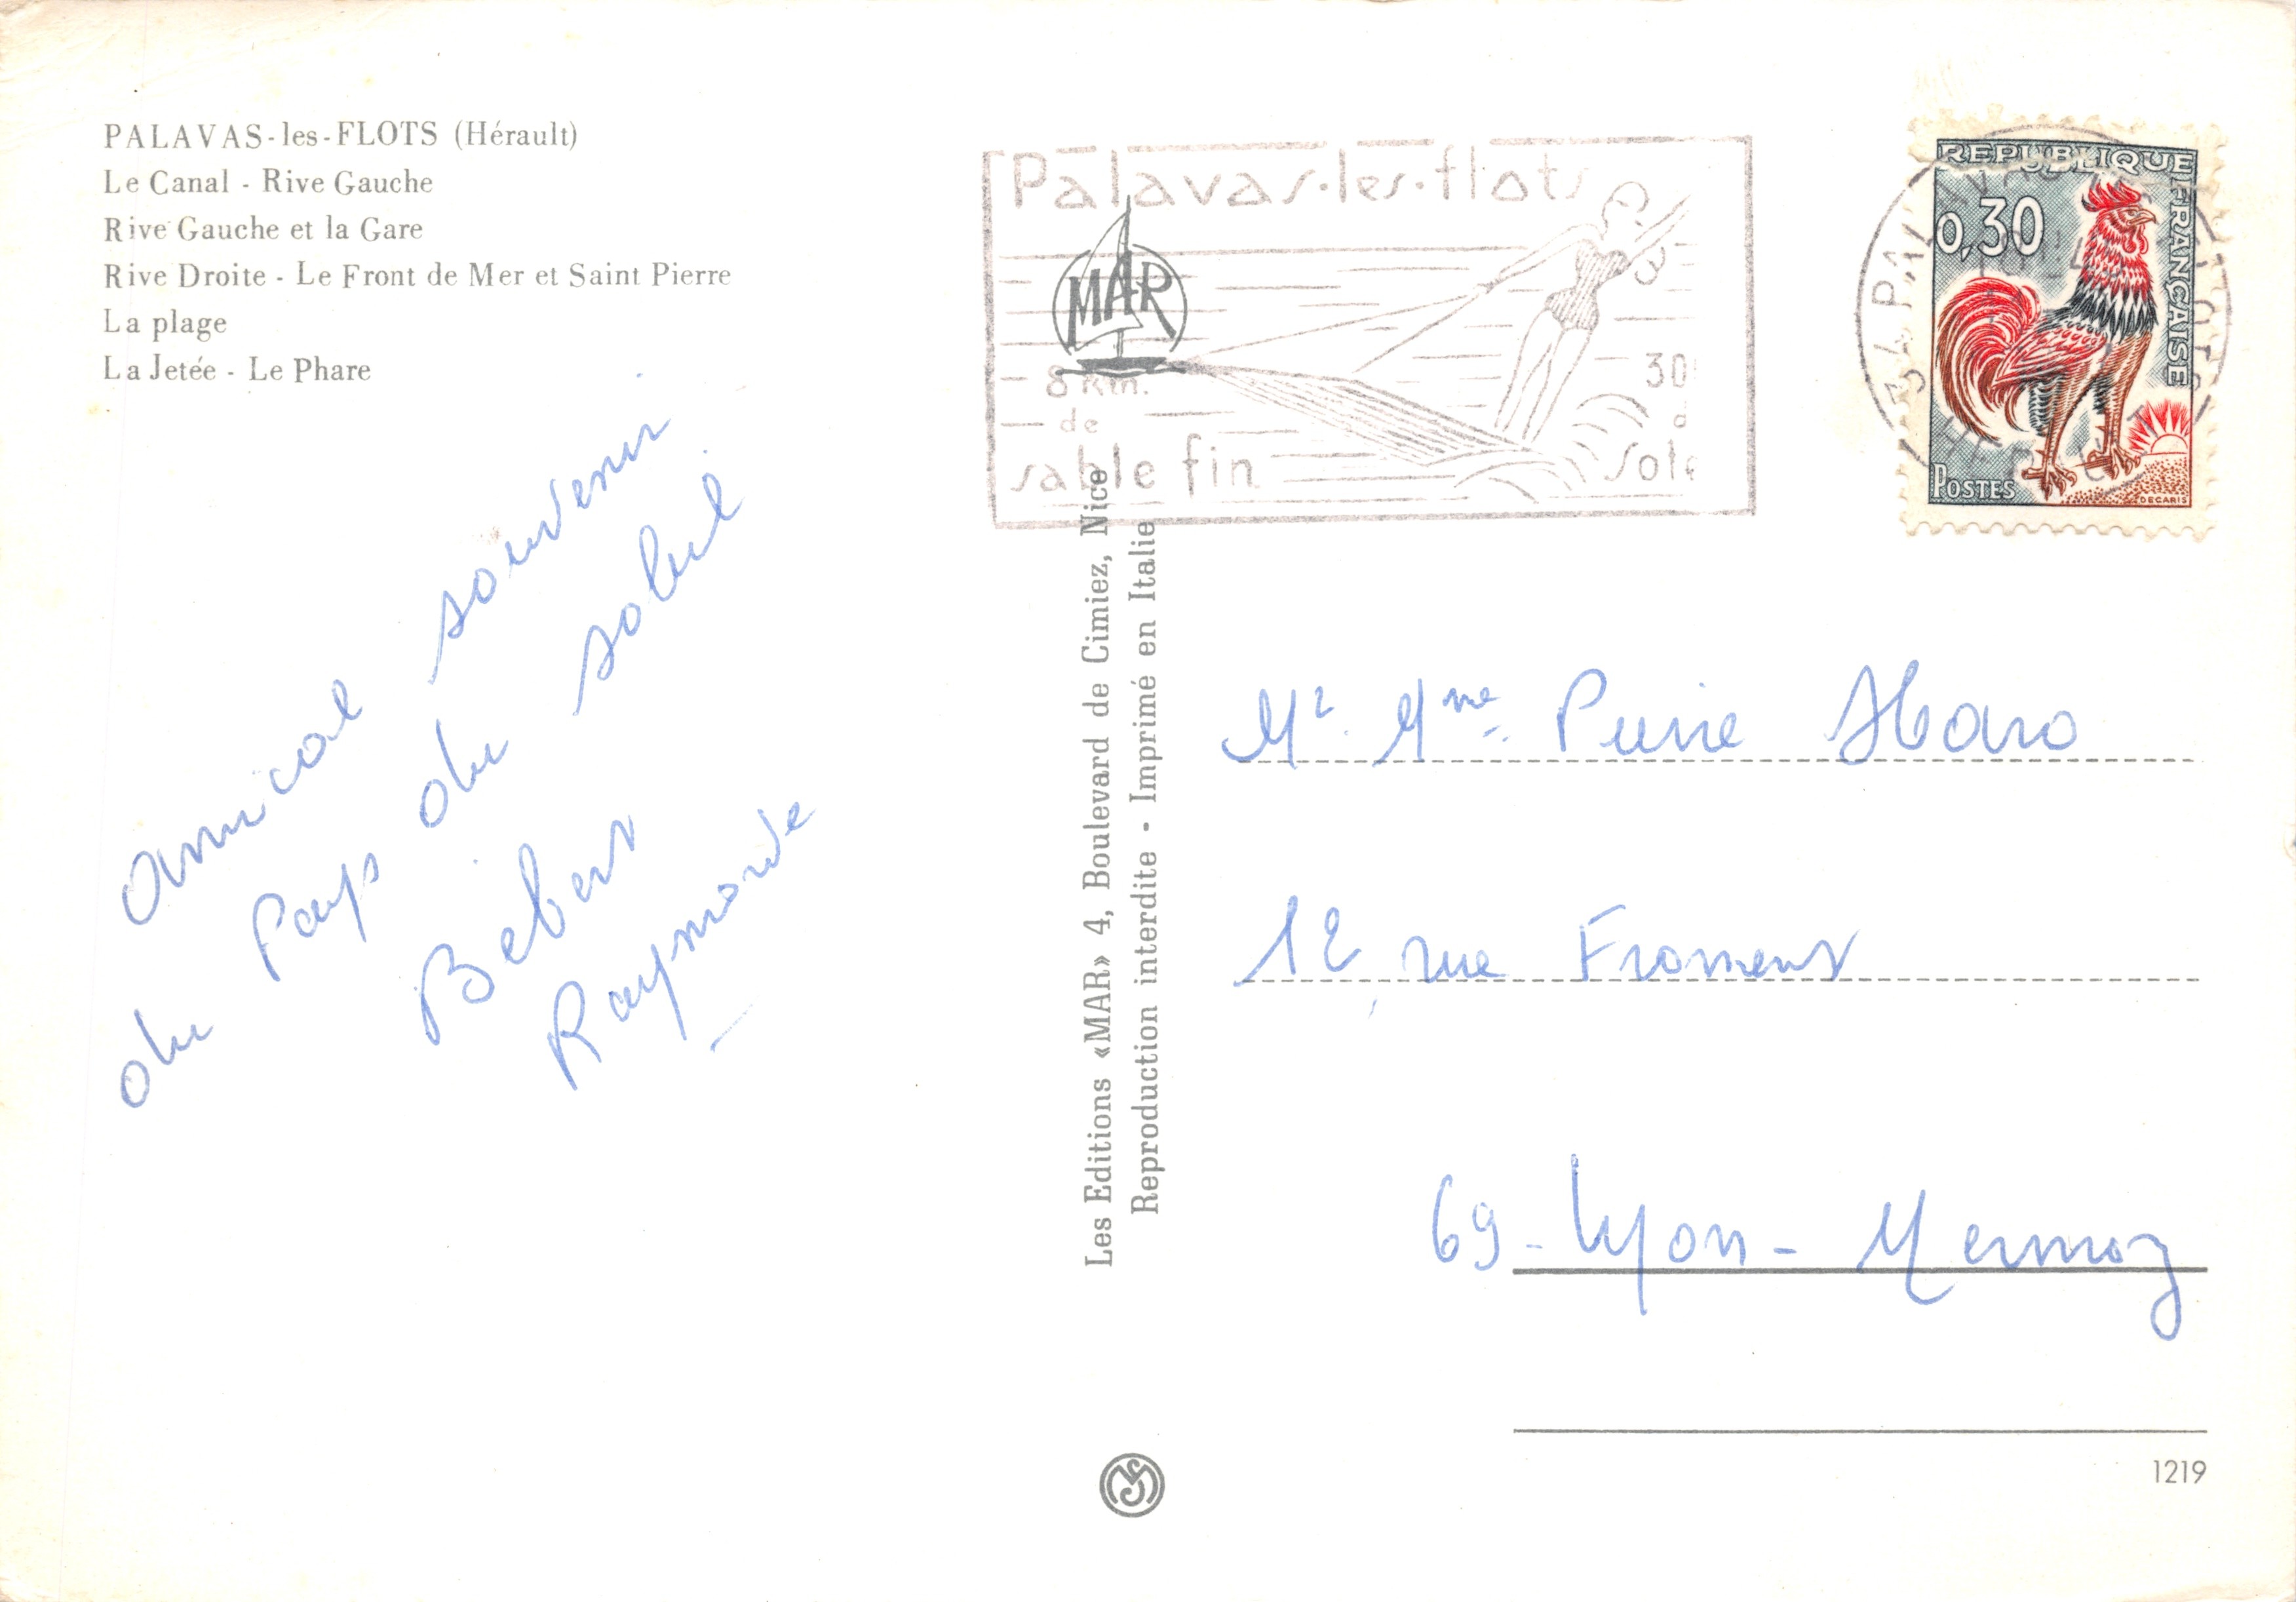 PALAVAS-les-FLOTS (Hérault)
Le Canal - Rive Gauche
Rive Gauche et la Gare
Rive Droite - Le Front de Mer et Saint Pierre
La plage
La Jetée - Le Phare
amical souvenir
du Pays du soleil
Bebert
Raymonde
Les Editions «MAR» 4, Boulevard de Cimiez, Nice
Reproduction interdite - Imprimé en Italie
Palavas-les-flots
MAR
8 Km.
de
sable fin
30
REPUBLIQUE
FRANÇAISE
0,30
POSTES
DECARIS
Mr Mme Pierre
12, rue Froment
69 - Lyon - Mermoz
1219